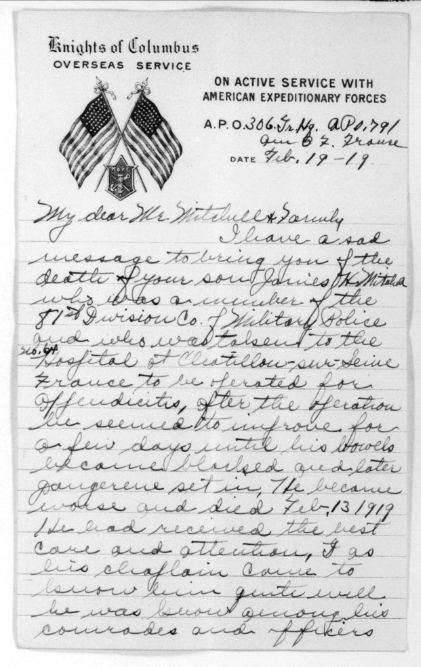 Knights of Columbus
OVERSEAS SERVICE
ON ACTIVE SERVICE WITH
AMERICAN EXPEDITIONARY FORCES
A.P.O. 306. Tr. Hq. APO. 791
Am E. F. France
DATE Feb. 19-19
My dear Mr. Mitchell & Family
I have a sad
message to bring you of the
death of your son James H. Mitchell
who was a member of the
81st Division Co. of Military Police
and who was taken to the
no. 64
Hospital at Chatillon-sur-Seine
France to be operated for
appendicitis, after the operation
he seemed to improve for
a few days until his bowels
became blocked and later
gangerene set in, He became
worse and died Feb. 13 1919
He had received the best
care and attention, I as
his chaplain came to
know him quite well
he was know among his
comrades and officers